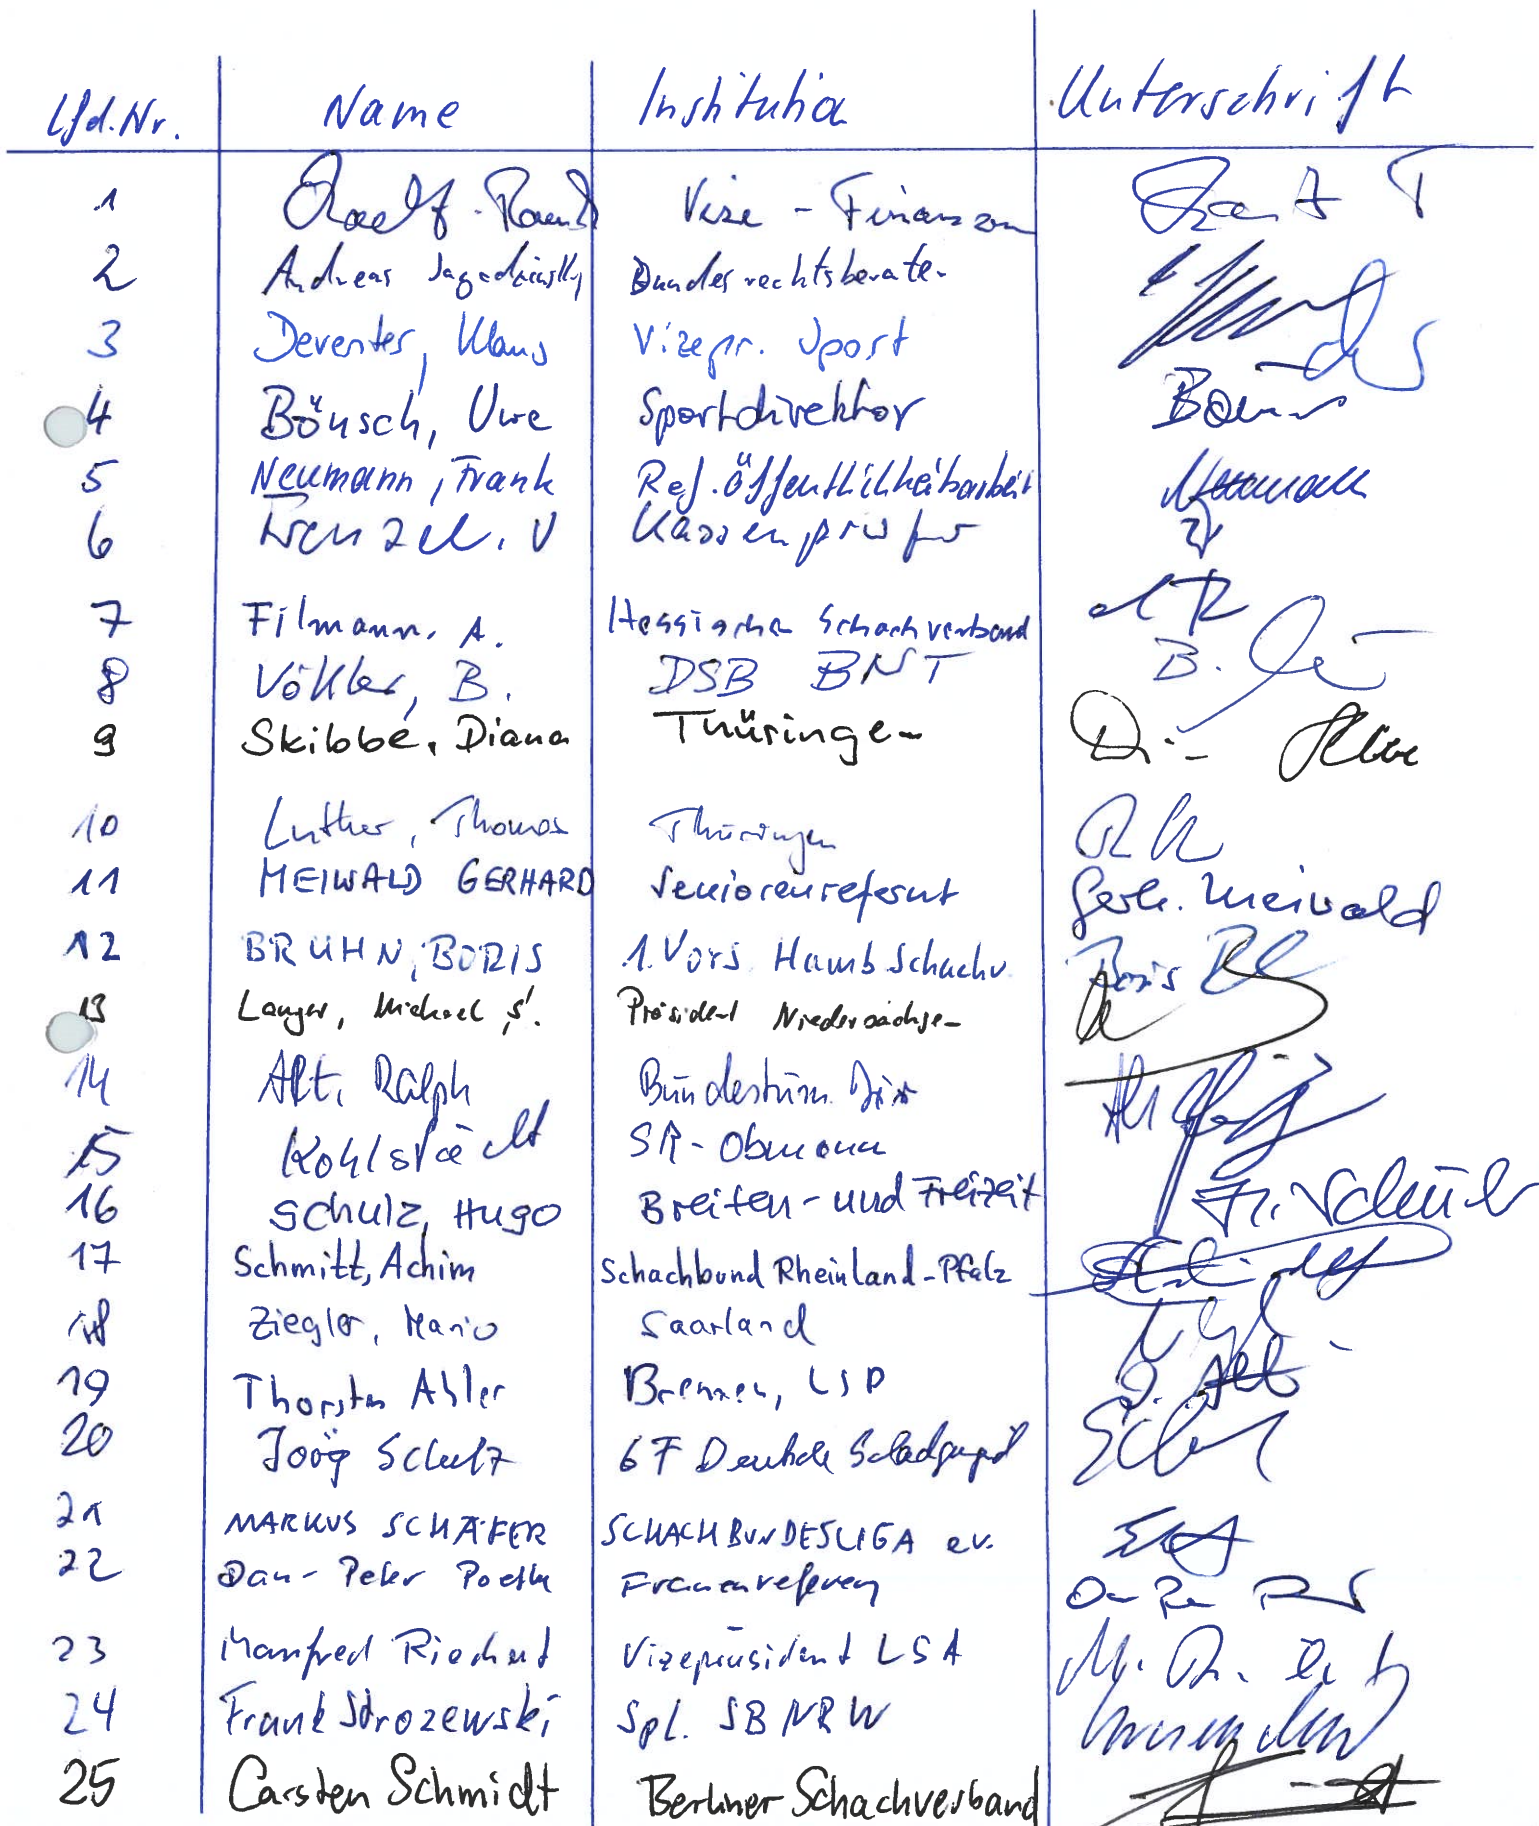 Lfd.Nr. Name Institution Unterschrift
1 Vize - Finanzen
2 Andreas Jagodzinsky Bundesrechtsberater
3 Deventer, Klaus Vizepr. Sport
4 Bönsch, Uwe Sportdirektor
5 Neumann, Frank Ref. Öffentlichkeitsarbeit Neumann
6 Wenzel, V Kassenprüfer
7 Filmann, A. Hessischer Schachverband
8 Vökler, B. DSB BNT B.
9 Skibbe, Diana Thüringen
10 Luther, Thomas Thüringen
11 MEIWALD GERHARD Seniorenreferent Gerh. Meiwald
12 BRUHN, BORIS 1. Vors Hamb Schachv Boris
13 Langer, Michael S. Präsident Niedersachsen
14 Alt, Ralph Bundesturn. Dir Alt
15 Kohlstädt SR-Obmann
16 Schulz, Hugo Breiten- und Freizeit
17 Schmitt, Achim Schachbund Rheinland-Pfalz
18 Ziegler, Mario Saarland
19 Thorsten Ahler Bremen, LSP
20 Jörg Schulz GF Deutsche Schachjugend
21 MARKUS SCHÄFER SCHACHBUNDESLIGA e.V.
22 Dan-Peter Poetke Frauenreferent
23 Manfred Riechert Vizepräsident LSA
24 Frank Strozewski Spl. SB NRW
25 Carsten Schmidt Berliner Schachverband